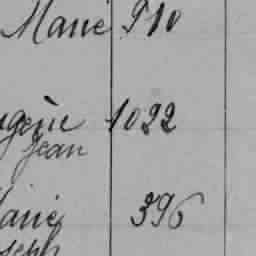 Marie 910
ugène 1022
Jean
Marie 396
oseph